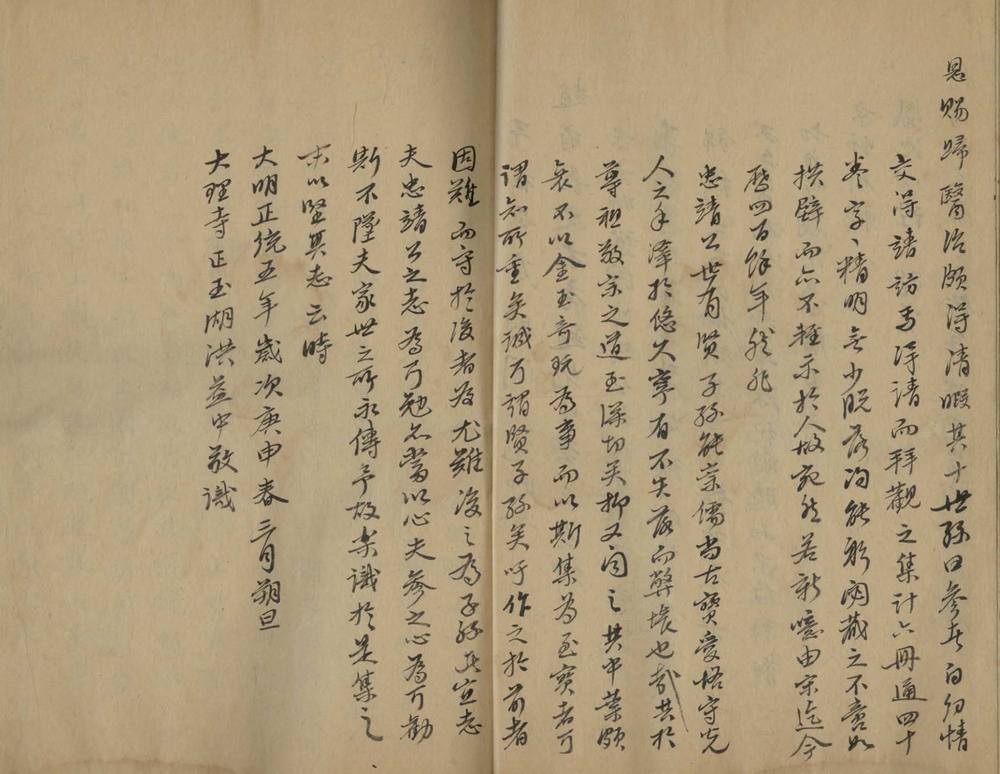 恩賜歸醫治頗得清暇其十世孫曰參者自幼情
交得請訪焉浮請而拜觀之集計六冊通四十
卷字〻精明無少脫落洵能躬閟藏之不啻如
拱璧而亦不輕示於人故宛然若新噫由宋迄今
歷四百餘年雖非
忠靖公世有賢子孫能崇儒尚古寶愛恪守先
人之手澤於悠久寧有不失落而弊壞也哉其於
尊祖敬宗之道至深切矣抑又聞之其中葉頗
衰不以金玉奇玩為事而以斯集為至寶者可
謂知所重矣誠可謂賢子孫矣吁作之於前者
因難而守於後者為尤難後之為子孫者宜志
夫忠靖公之志為可勉亦當以心夫參之心為可勸
斯不墜夫家世之所永傳予故樂識於是集之
末以堅其志云時
大明正統五年歲次庚申春三月朔旦
大理寺正玉湖洪益中敬識